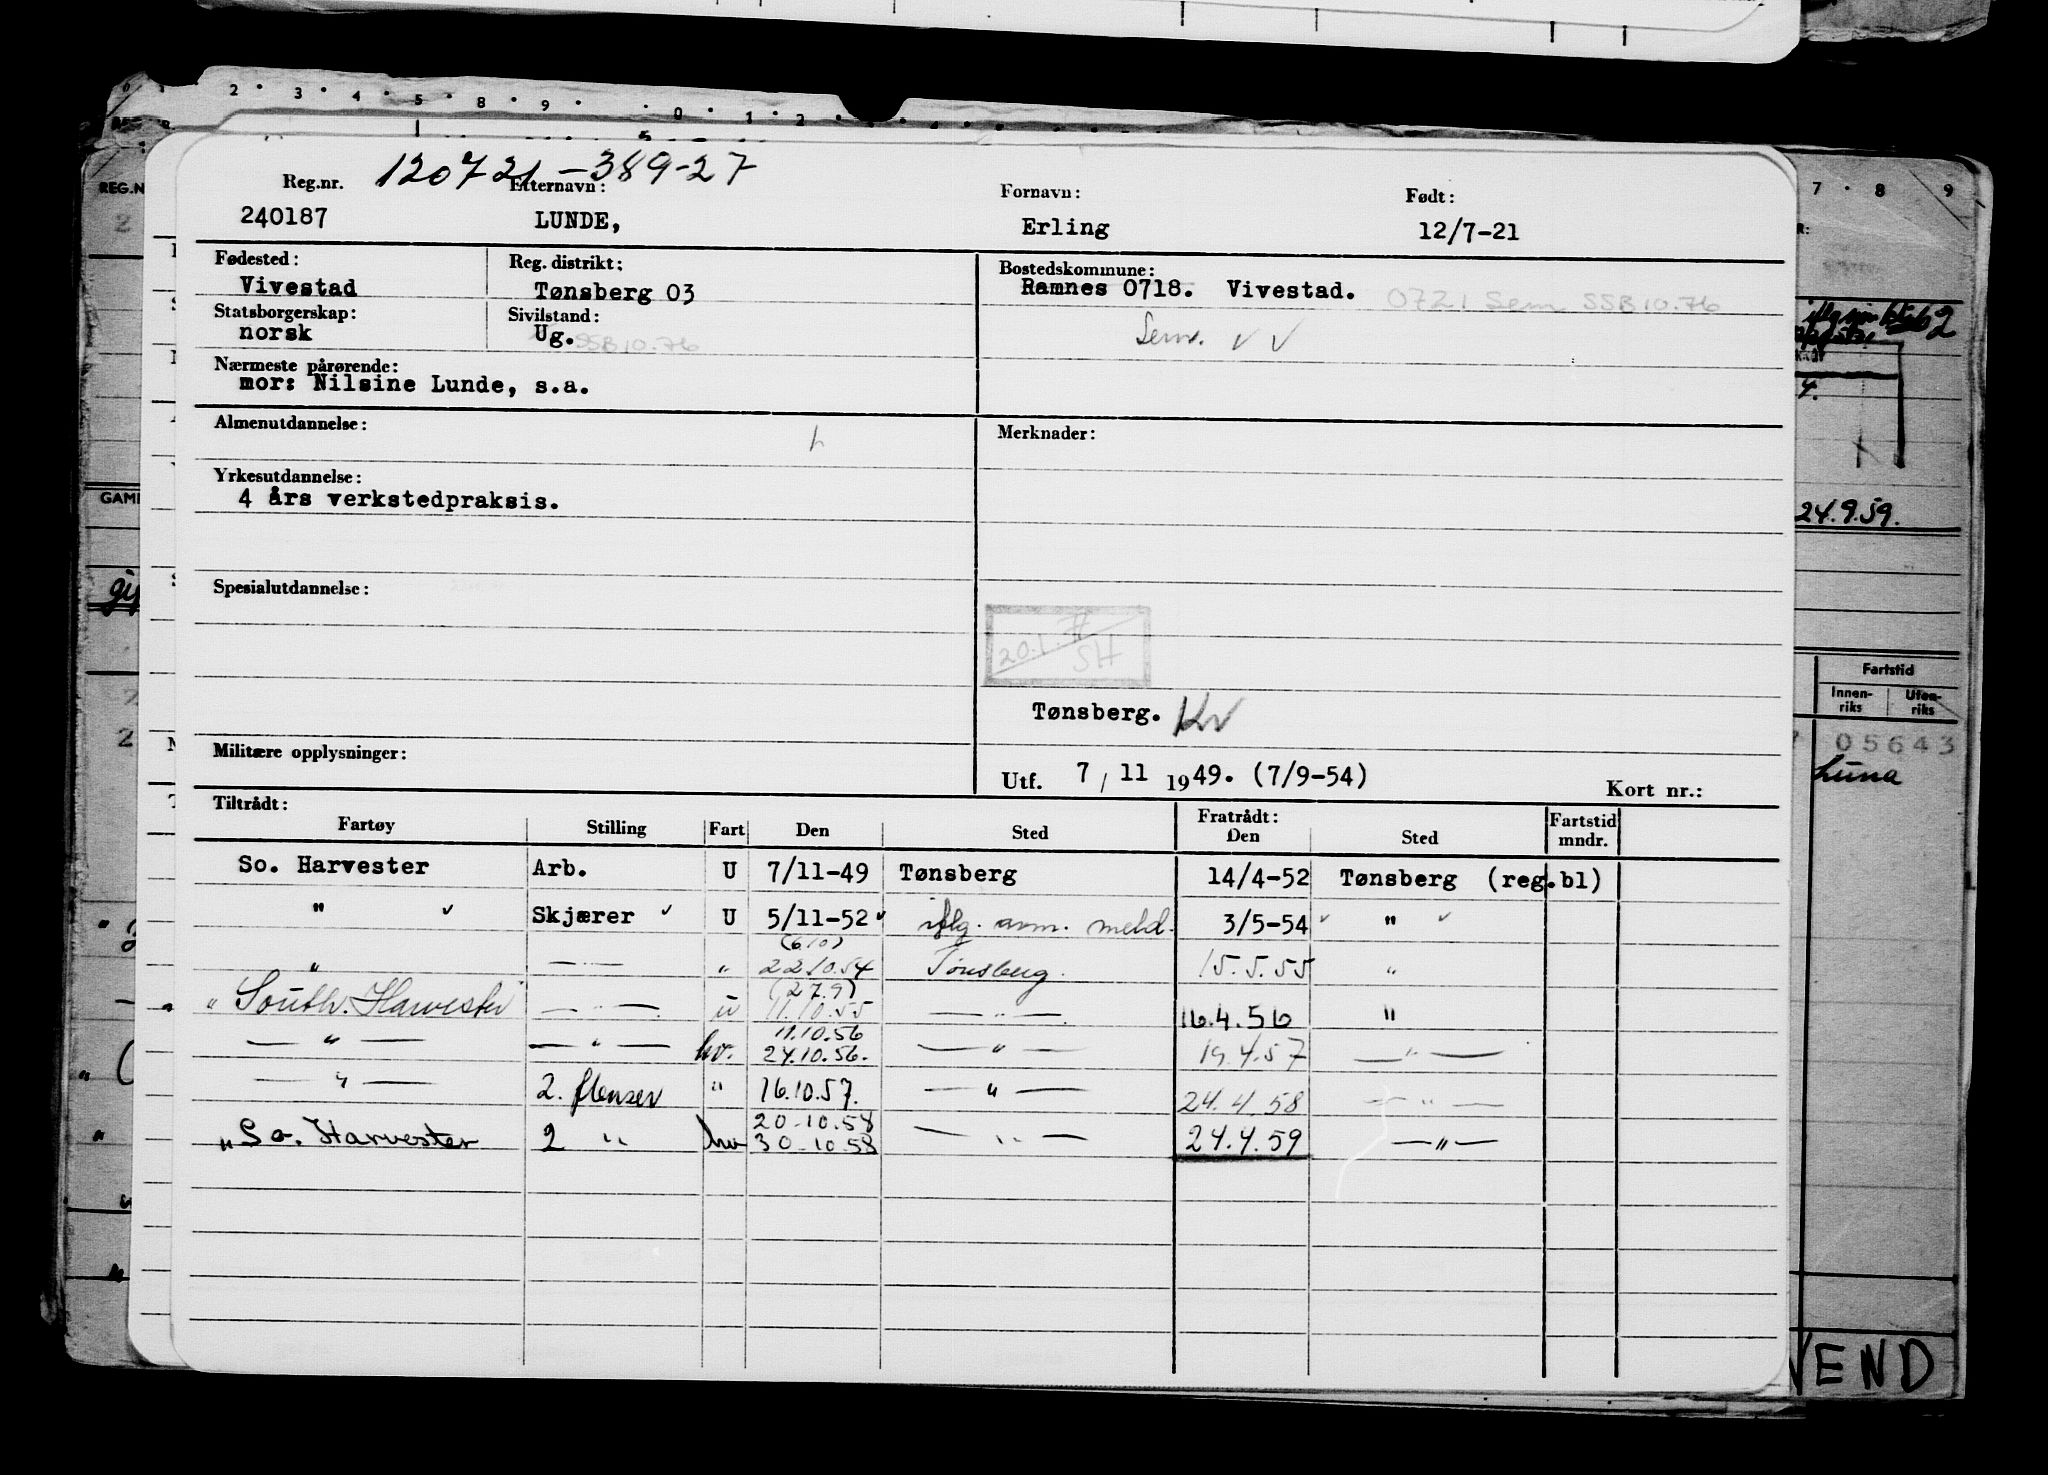 120721-389-27
Reg.nr. Etternavn: Fornavn: Født:
240187 LUNDE, Erling 12/7-21
Fødested: Reg. distrikt: Bostedskommune:
Vivestad Tønsberg 03 Ramnes 0718. Vivestad. 0721 Sem SSB 10.76
Statsborgerskap: Sivilstand:
norsk Ug. SSB 10.76 Sem. v v
Nærmeste pårørende:
mor: Nilsine Lunde, s.a.
Almenutdannelse: Merknader:
Yrkesutdannelse:
4 års verkstedpraksis.
Spesialutdannelse:
20.1. SH
Tønsberg. Kv
Militære opplysninger:
Utf. 7 / 11 1949. (7/9-54) Kort nr.:
Tiltrådt: Fratrådt:
Fartøy Stilling Fart Den Sted Den Sted Fartstid mndr.
So. Harvester Arb. U 7/11-49 Tønsberg 14/4-52 Tønsberg (reg.bl)
" v Skjærer v U 5/11-52 v iflg. avm. meld. 3/5-54 v " v
(6.10)
" — " — " 22.10.54 Tønsberg. 15.5.55 "
(27.9)
" South. Harvester — " — u 11.10.55 — " — 16.4.56 "
11.10.56
— " — — " — hv. 24.10.56. — " — 19.4.57 — " —
— " — 2. flenser " 16.10.57. — " — 24.4.58 — " —
20-10.58
" So. Harvester 2 " hv 30-10.58 — " — 24.4.59 — " —
REG.N
GAM
24.9.59.
Fartstid
Innen-riks Uten-riks
05643
Luna
VEND